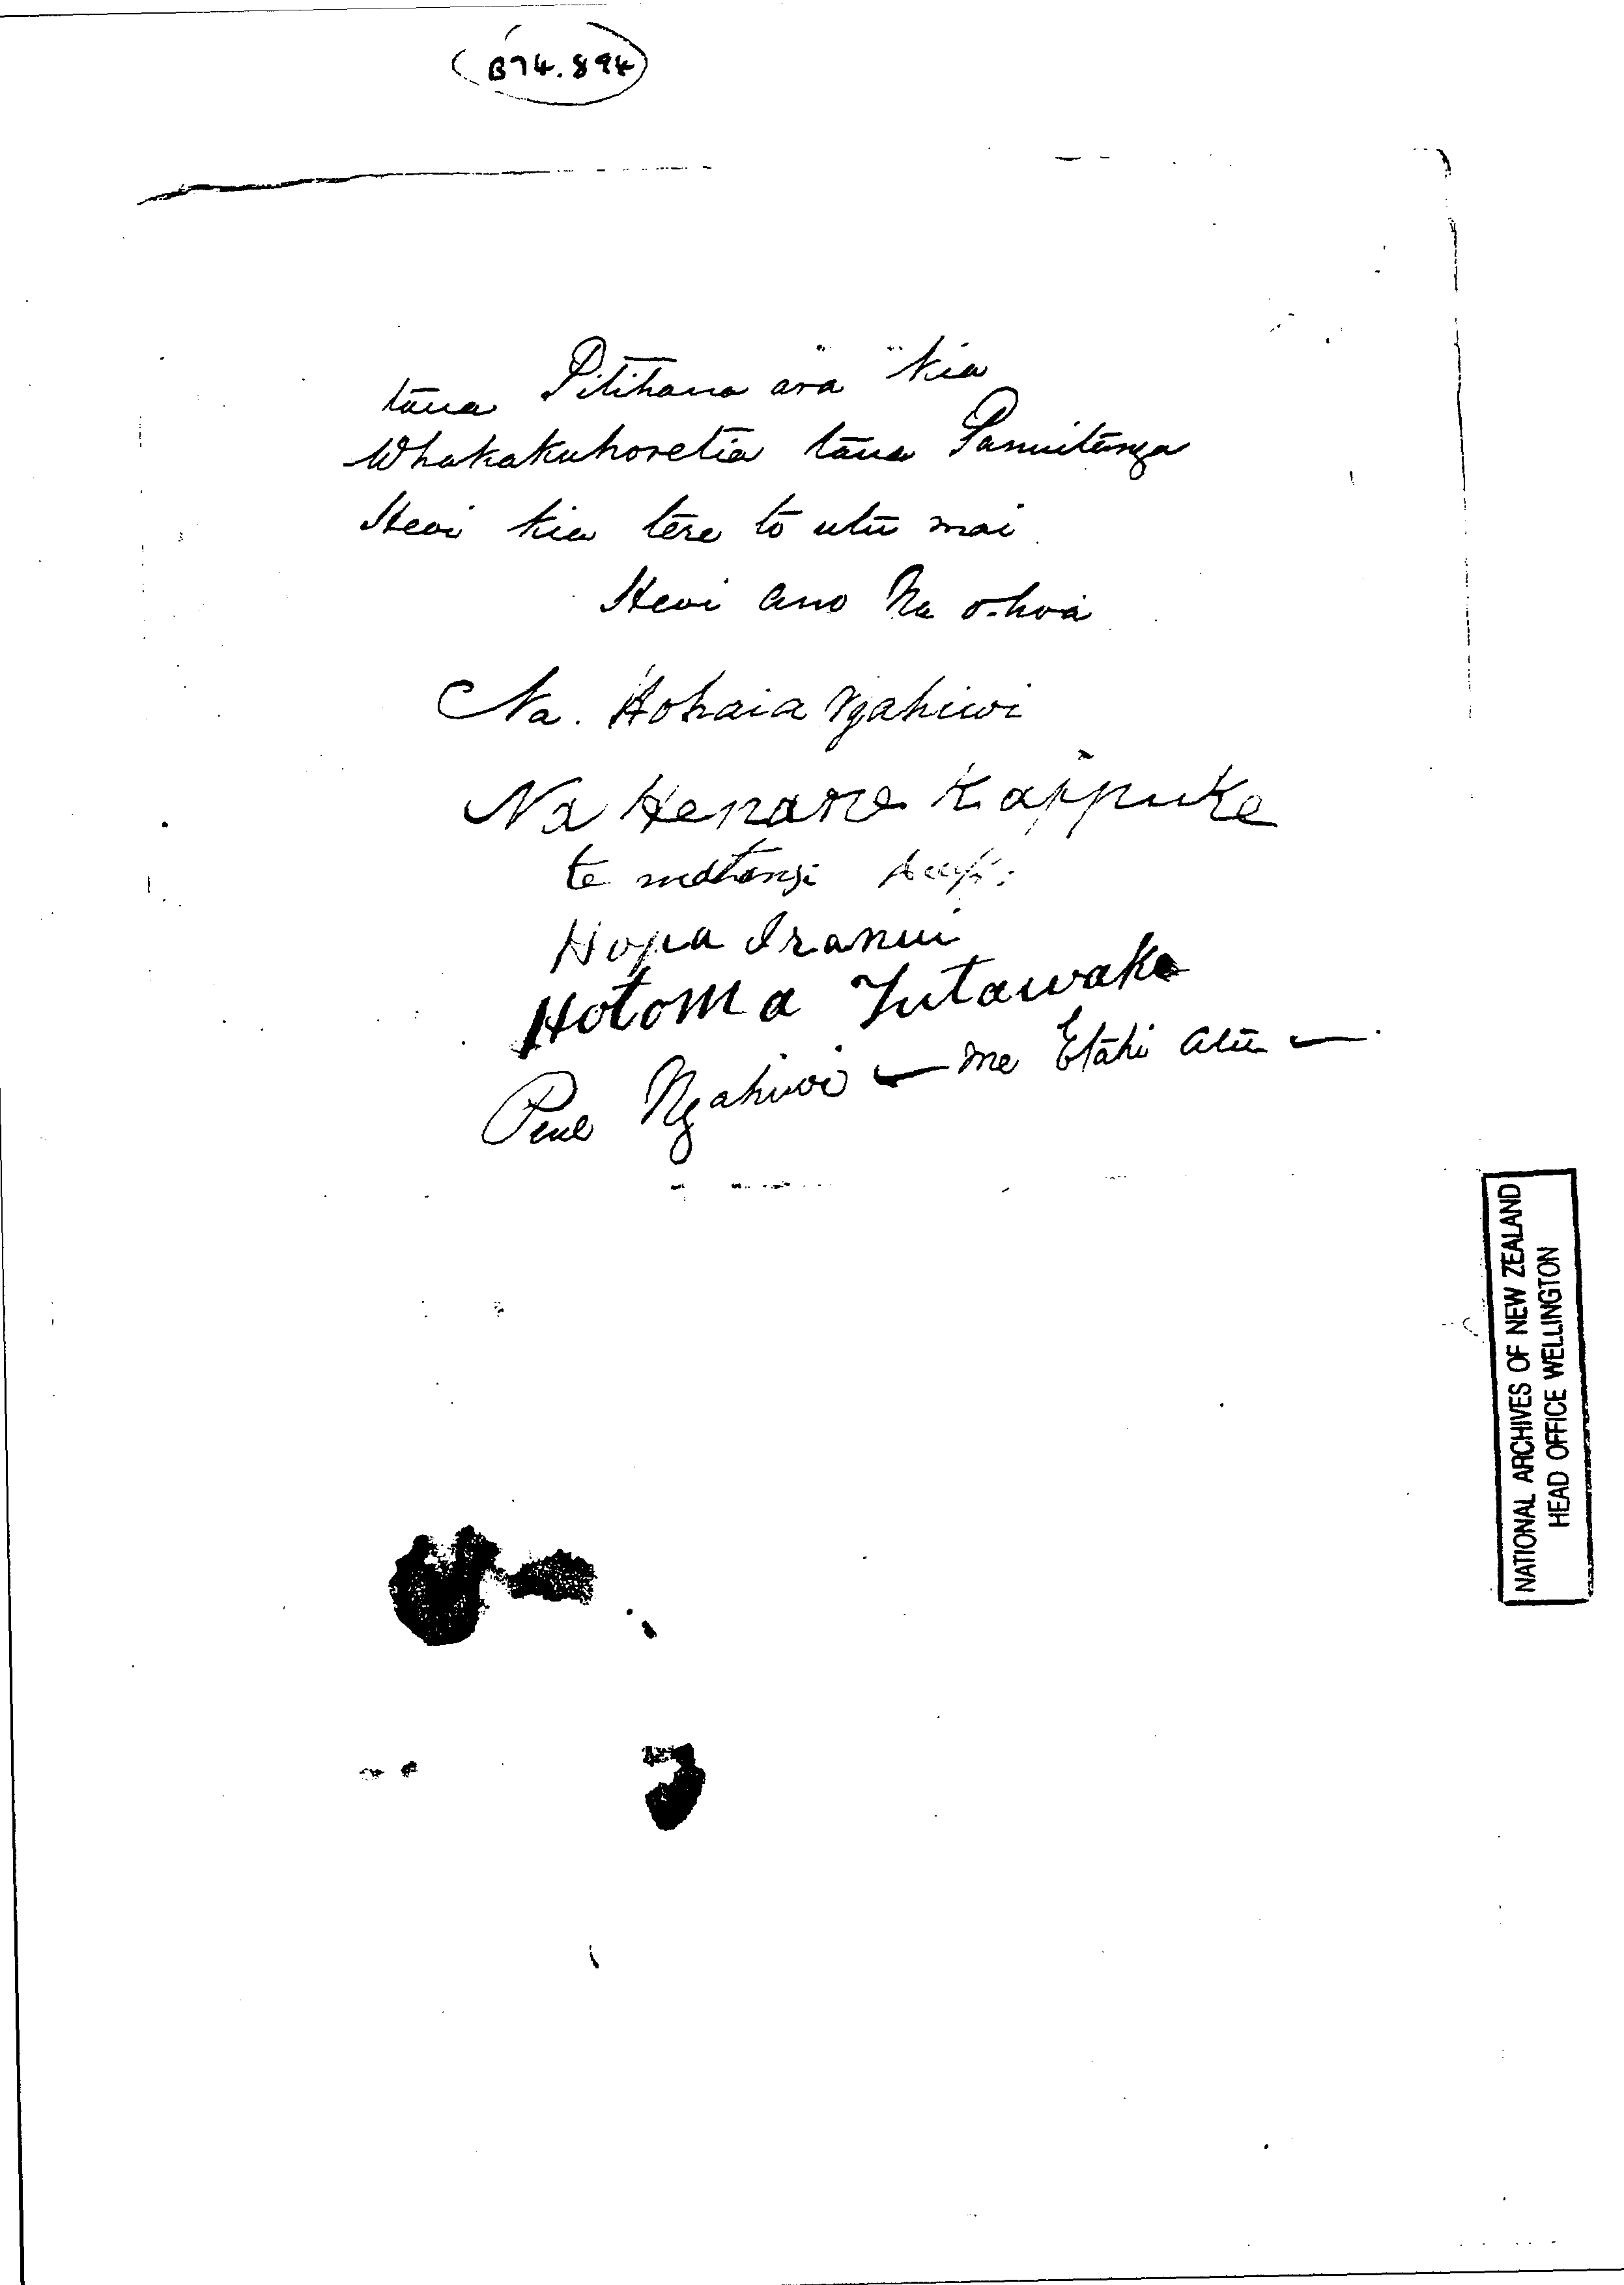 B74.894
taua Pitihana ara kia
Whakakuhoretia taua Panuitanga
Heoi kia tere to utu mai
Heoi ano Na o hoa
Na. Hohaia Ngahiwi
Na Henare Kappuke
te matangi
Hopa Iranui
Hotoma Tutawake
Pene Ngahiwi — me Etahi atu —
NATIONAL ARCHIVES OF NEW ZEALAND
HEAD OFFICE WELLINGTON